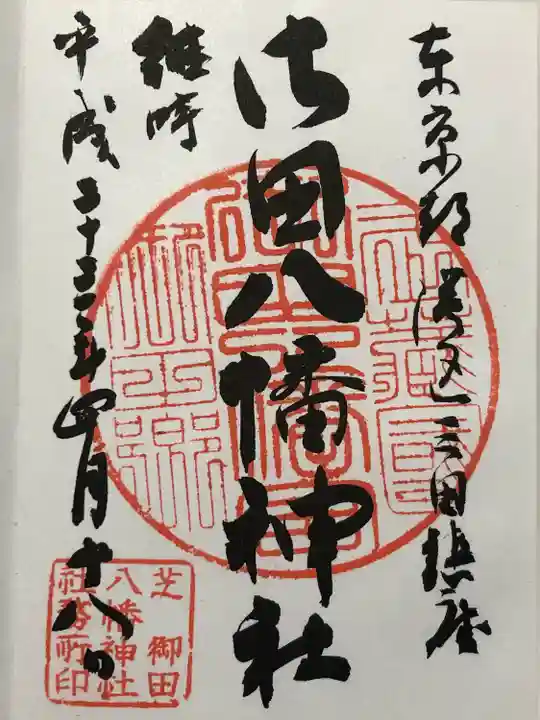 東京都港区三田鎮座
御田八幡神社
維時
平成二十三年四月十八日
芝御田
八幡神社
社務所印